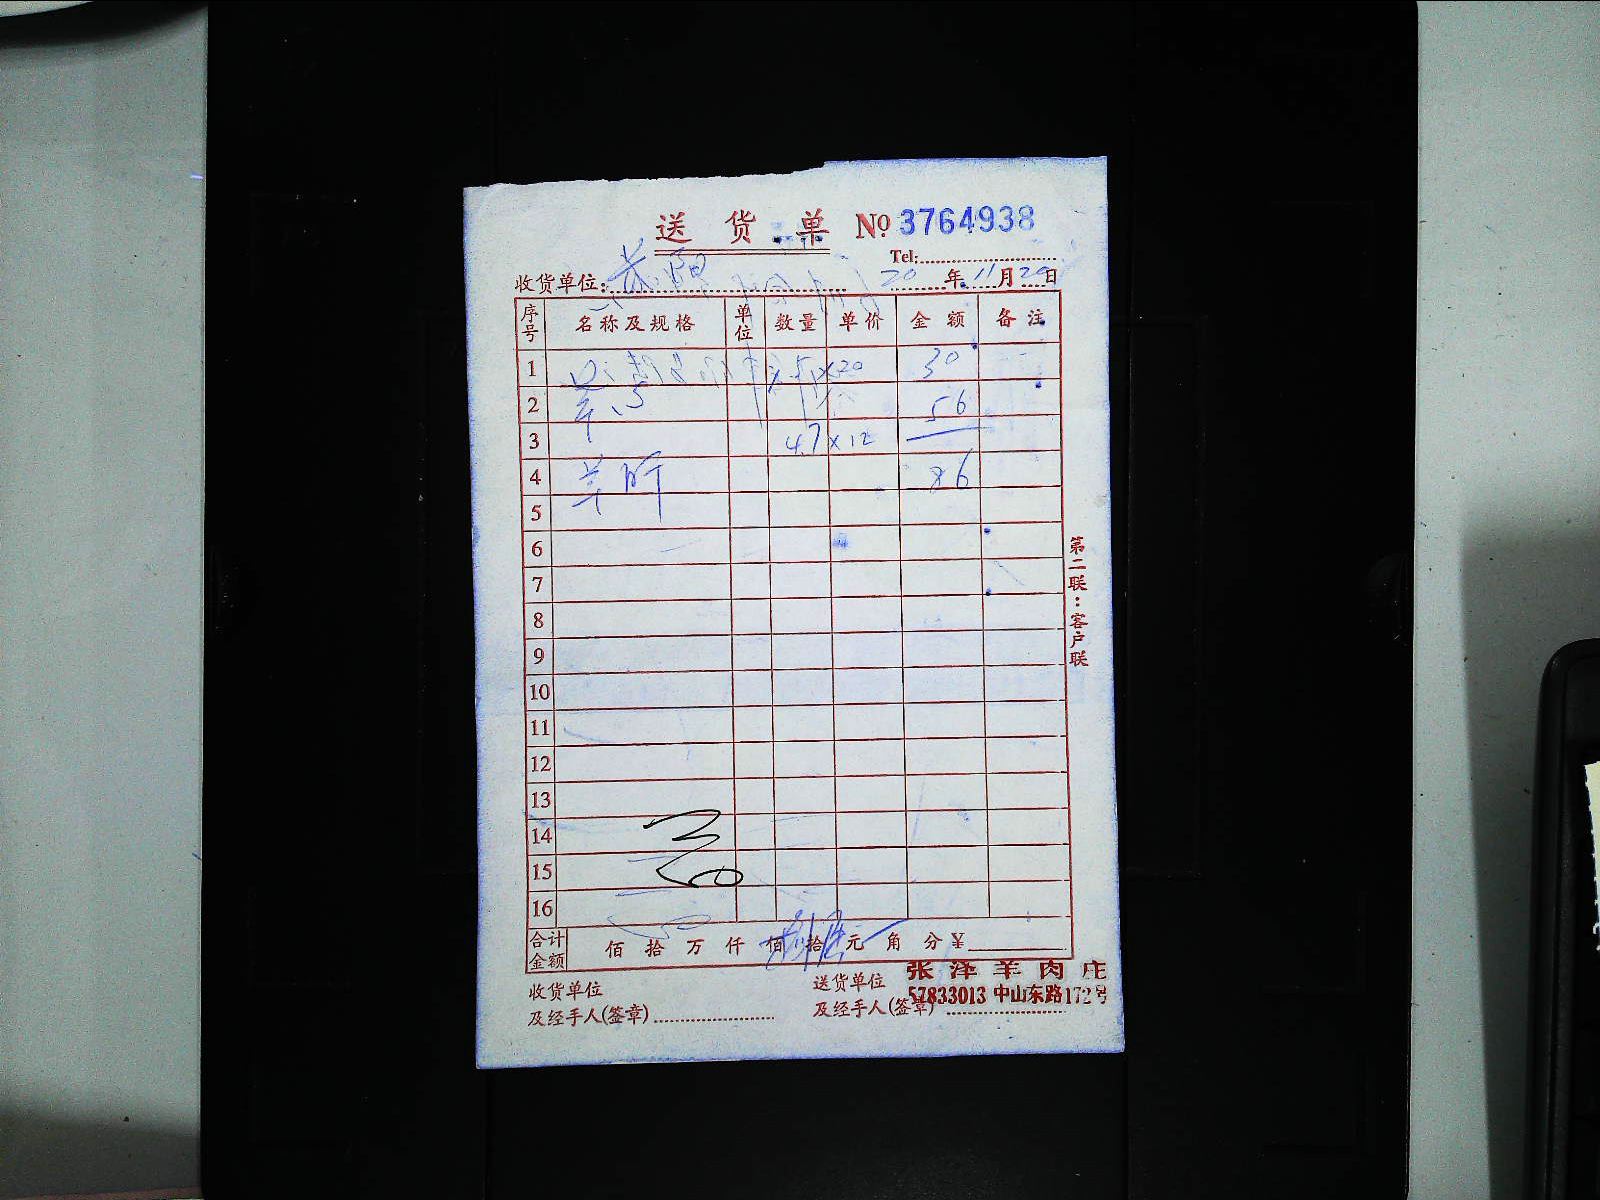 送货单 № 3764938
Tel:
收货单位: 20年11月20日
序号 名称及规格 单位 数量 单价 金额 备注
1 ×20 30
2 羊心 56
3 4.7×12
4 羊 86
5
6
7
8
9
10
11
12
13
14
15
16
合计金额 佰拾万仟佰拾元角分¥
第二联:客户联
收货单位 送货单位 张泽羊肉庄
及经手人(签章) 及经手人(签章) 57833013 中山东路172号